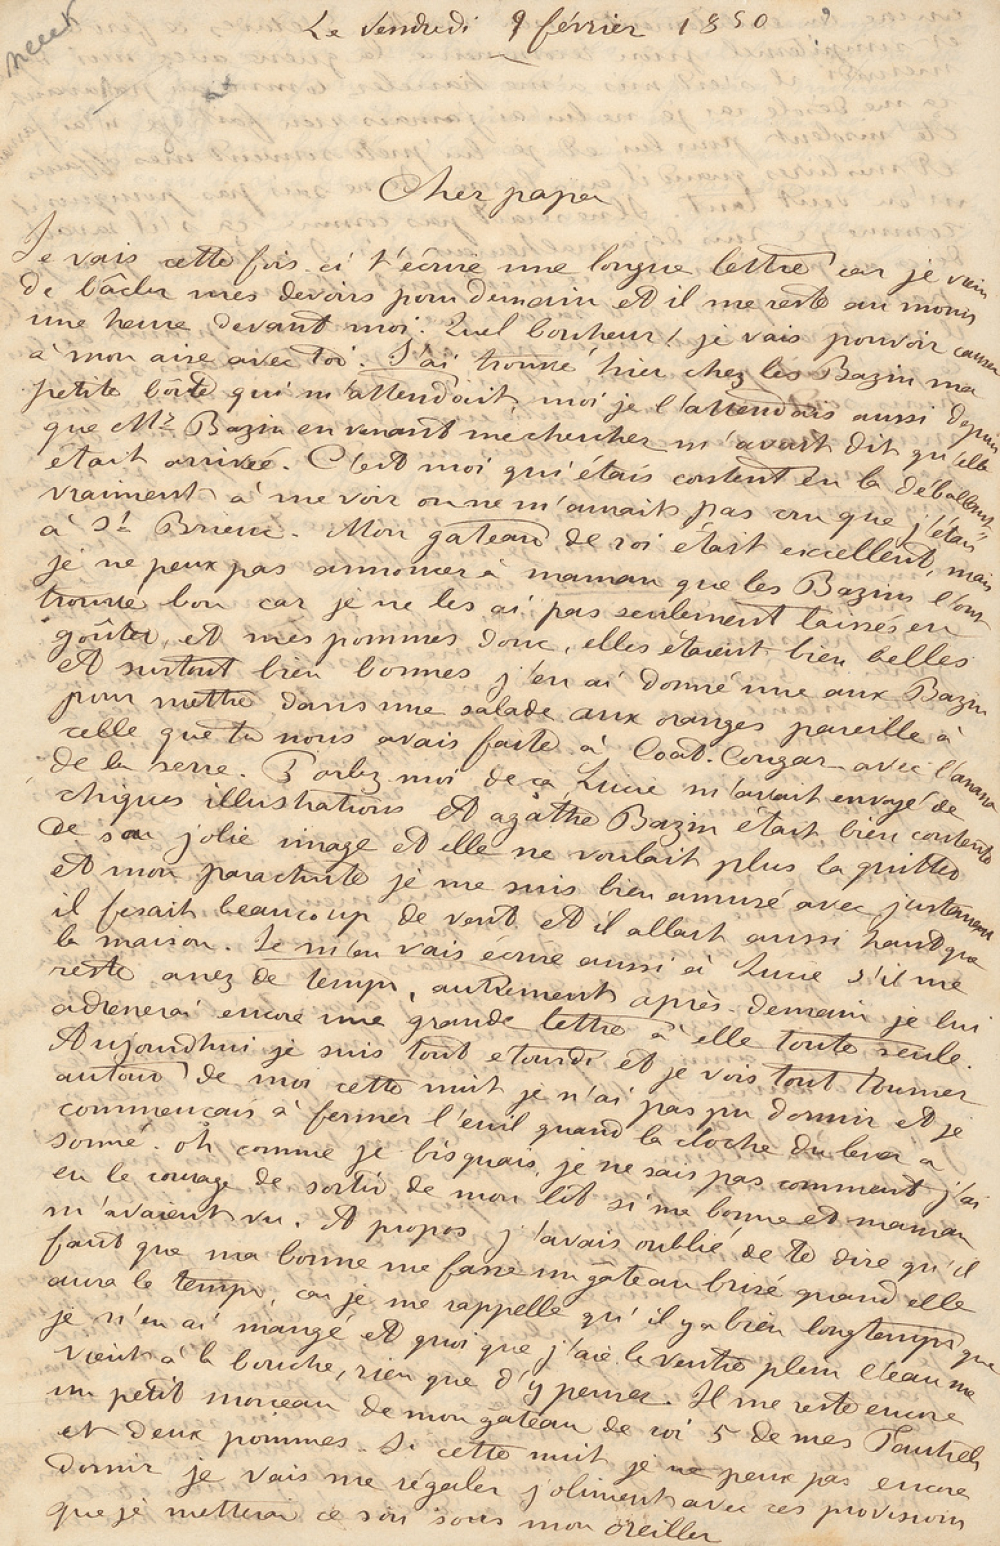 neuf
Le Vendredi 9 février 1850
Cher papa
Je vais cette fois-ci t'écrire une longue lettre car je viens
de bâcler mes devoirs pour demain et il me reste au moins
une heure devant moi. Quel bonheur ! je vais pouvoir causer
à mon aise avec toi. J'ai trouvé hier chez les Bazin ma
petite boîte qui m'attendait, moi je l'attendais aussi depuis
que Mr Bazin en venant me chercher m'avait dit qu'elle
était arrivée. C'est moi qui étais content en la déballant
vraiment à me voir on ne m'aurait pas cru que j'étais
à St Brieuc. Mon gateau de roi était excellent, mais
je ne peux pas annoncer à maman que les Bazins l'ont
trouvé bon car je ne les ai pas seulement laissés en
goûter, et mes pommes donc, elles étaient bien belles
et surtout bien bonnes j'en ai donné une aux Bazin
pour mettre dans une salade aux oranges pareille à
celle que tu nous avais faite à Coat-Congar avec l'anana
de la serre. Parlez moi de ça, Lucie m'avait envoyé de
chiques illustrations et agàthe Bazin était bien contente
de sa jolie image et elle ne voulait plus la quitter
et mon parachute je me suis bien amusé avec justement
il fesait beaucoup de vent et il allait aussi haut que
la maison. Je m'en vais écrire aussi à Lucie s'il me
reste assez de temps, autrement après-demain je lui
adresserai encore une grande lettre à elle toute seule.
Aujourdhui je suis tout etourdi et je vois tout tourner
autour de moi cette nuit je n'ai pas pu dormir et je
commençais à fermer l'euil quand la cloche du lever a
sonné. oh comme je bisquais, je ne sais pas comment j'ai
eu le courage de sortir de mon lit si ma bonne et maman
m'avaient vu. A propos j'avais oublié de te dire qu'il
faut que ma bonne me fasse un gâteau brisé quand elle
aura le temps, car je me rappelle qu'il y a bien longtemps que
je n'en ai mangé et quoi que j'aie le ventre plein l'eau me
vient à la bouche, rien que d'y penser. Il me reste encore
un petit morceau de mon gâteau de roi 5 de mes
et deux pommes. Si cette nuit je ne peux pas encore
dormir je vais me régaler joliment avec ces provisions
que je metterai ce soir sous mon oreiller